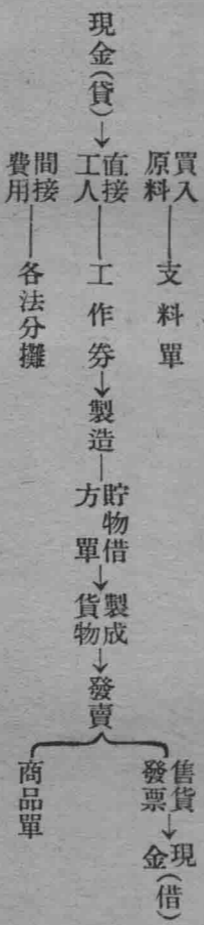 現金(貸)→
買入原料——支料單
直接工人——工作券→製造—貯物借方單→製成貨物→發賣
間接費用——各法分攤
售貨發票→現金(借)
商品單